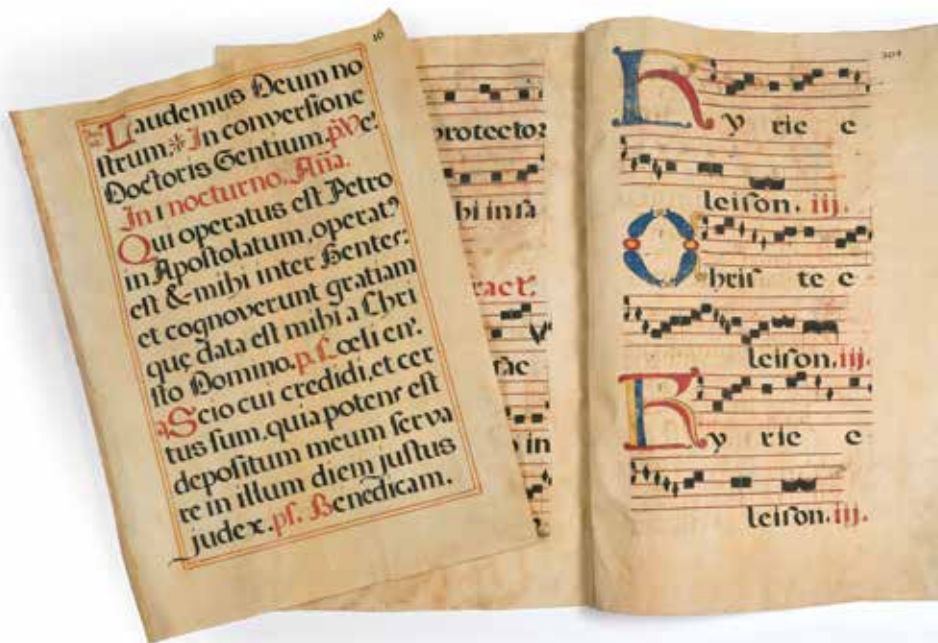 16
Laudemus Deum no
ſtrum.* In converſione
Doctoris Gentium.
In 1 nocturno. Aña.
Qui operatus eſt Petro
in Apoſtolatum, operat?
eſt & mihi inter Genter:
et cognoverunt gratiam
quę data eſt mihi a Chri
ſto Domino. p. Cœli en?.
Scio cui credidi, et cer
tus ſum, quia potenſ eſt
depoſitum meum ſerva
re in illum diem juſtus
judex. pſ. Benedicam.
protector
bi in ſa
ract?.
rae
in
204
Ky rie e
leiſon. iij.
Chriſ te e
leiſon. iij.
Ky rie e
leiſon. iij.